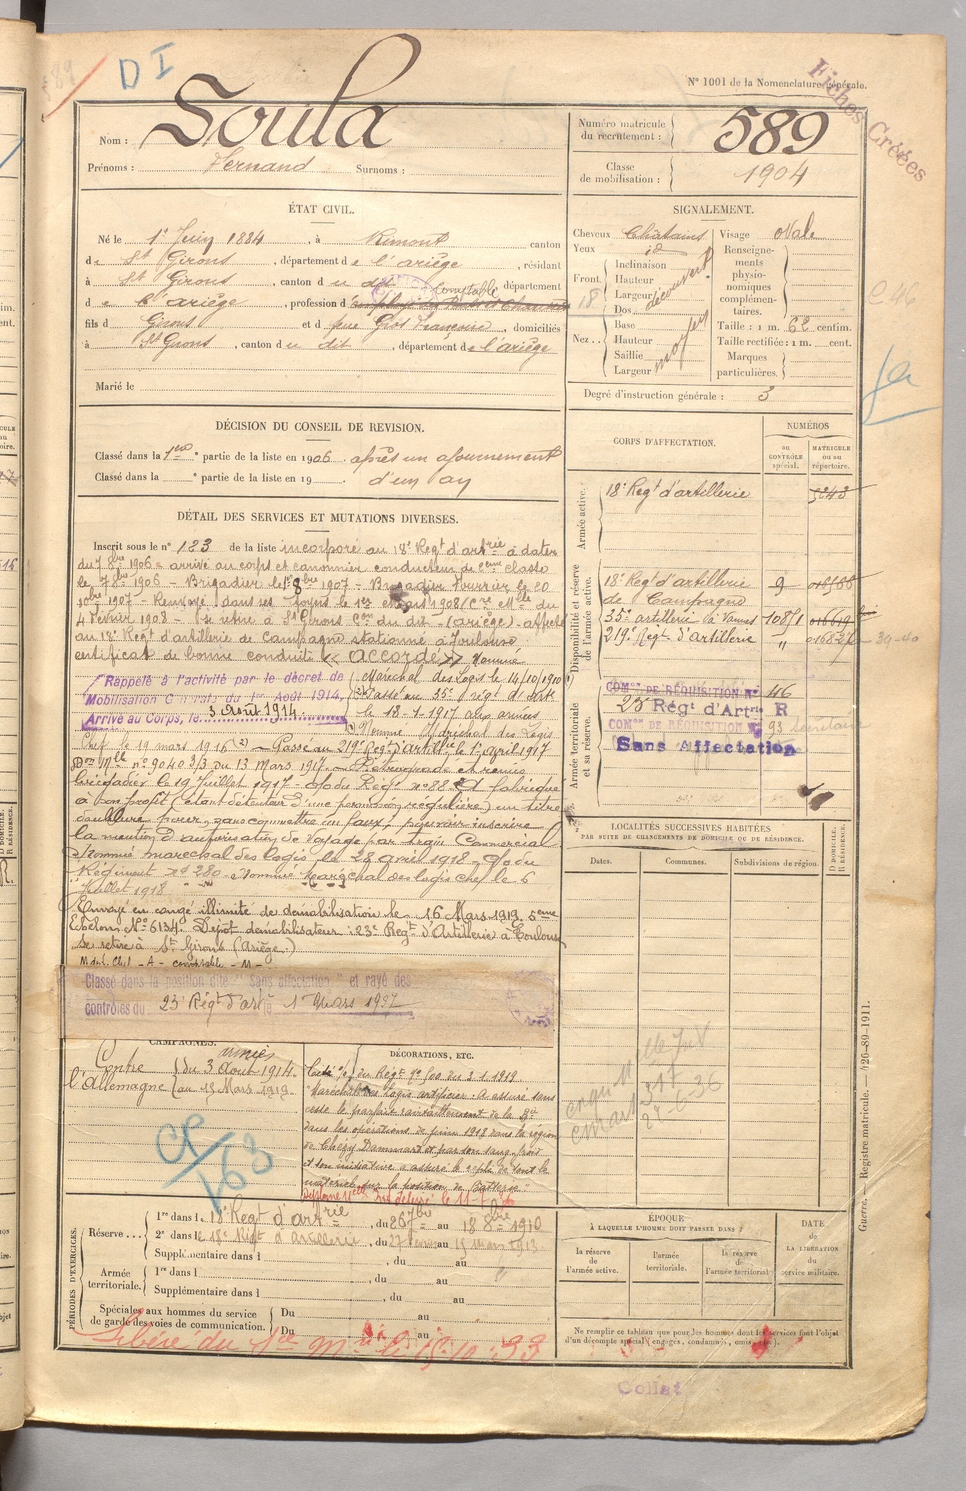 D I
N° 1001 de la Nomenclature générale.
Fiches Créées
Nom : Soula
Prénoms : Fernand Surnoms :
Numéro matricule du recrutement : 589
Classe de mobilisation : 1904
ÉTAT CIVIL.
Né le 1er Juin 1884, à Rimont canton
de St Girons, département de l'ariège, résidant
à St Girons, canton du dit, département
Comptable
de l'ariège, profession d'
fils de Girons et de feue Gros Françoise, domiciliés
à St Girons, canton du dit, département de l'ariège
Marié le
SIGNALEMENT.
Cheveux Châtains Visage oVale
Yeux id
Front. Inclinaison
Hauteur
Largeur
découvert
Nez. Dos
Base
Hauteur
Saillie
Largeur
moyen
Renseignements physionomiques complémentaires.
Taille : 1 m. 62 centim.
Taille rectifiée : 1 m. cent.
Marques particulières.
Degré d'instruction générale : 3
DÉCISION DU CONSEIL DE REVISION.
Classé dans la 1ere partie de la liste en 1906 après un ajournement
Classé dans la e partie de la liste en 19 d'un an
CORPS D'AFFECTATION.
NUMÉROS
au CONTRÔLE spécial.
MATRICULE ou au répertoire.
Armée active.
18e Regt d'artillerie
Disponibilité et réserve de l'armée active.
18e Regt d'artillerie 9
de Campagne
35e artillerie à Vannes 108/1
219e Regt d'artillerie "
Armée territoriale et sa réserve.
COMon DE RÉQUISITION N° 46
23e Régt d'Artrie R
COMon DE RÉQUISITION N° 93 secrétaire
Sans Affectation
DÉTAIL DES SERVICES ET MUTATIONS DIVERSES.
Inscrit sous le n° 123 de la liste incorporé au 18e Regt d'artrie à dater
du 7 8bre 1906 = arrivé au corps et canonnier conducteur de 2eme classe
le 7 8bre 1906 – Brigadier le 8bre 1907 – Brigadier Fourrier le 20
10bre 1907 – Renvoyé dans ses foyers le 1er mars 1908 (Cre Mlle du
4 Février 1908 – Se retire à St Girons Con du dit – (ariège) – affecté
au 18e Regt d'artillerie de Campagne stationné à Toulouse
certificat de bonne conduite « accordé » Nommé
Rappelé à l'activité par le décret de
Mobilisation Générale du 1er Août 1914,
Arrivé au Corps, le 3 Août 1914.
Maréchal des Logis le 14/10/1910
Passé au 35e régt d'Art
le 18-1-1917 aux armées
Nommé Maréchal des Logis
Chef le 19 mars 1916 (2) – Passé au 219e Regt d'artillie le 1er avril 1917
Don Mlle n° 9040 3/3 du 13 Mars 1917 – Rétrogradé et remis
brigadier le 19 Juillet 1917 – o/ du Regt n° 88
à son profit (étant détenteur d'une permission régulière) un titre
d'allure pour, sans commettre un faux, pouvoir inscrire
la mention d'autorisation de voyage par train Commercial
Nommé maréchal des logis le 28 avril 1918 – o/ du
Régiment n° 280 – Nommé Maréchal des logis chef le 6
Juillet 1918
Envoyé en congé illimité de démobilisation le 16 Mars 1919. 5eme
Echelon N° 6134. Dépôt démobilisateur : 23e Regt d'Artillerie à Toulouse
Se retire à St Girons (Ariège)
Mdl. Chef – A – comptable – M –
Classé dans la position dite "Sans affectation" et rayé des
contrôles du 23e Régt d'artie 1er Mars 1927
LOCALITÉS SUCCESSIVES HABITÉES
PAR SUITE DE CHANGEMENTS DE DOMICILE OU DE RÉSIDENCE.
Dates. Communes. Subdivisions de région. D DOMICILE. R RÉSIDENCE.
CAMPAGNES.
Contre l'Allemagne
armées
du 3 Août 1914
au 15 Mars 1919
CP/63
DÉCORATIONS, ETC.
Cité o/ du Régt N° 500 du 3.1.1919.
Maréchal des Logis artificier : A assuré sans
cesse le parfait ravitaillement de la Bie
dans les opérations de juin 1918 dans la région
de Chézy Dammard et par son sang-froid
et son initiative a assuré le repli de tout le
matériel sur la position de Batterie
27-6-36
PÉRIODES D'EXERCICES.
Réserve...
1re dans le 18e Regt d'artrie, du 26 7bre au 18 8bre 1910
2e dans le 18e Régt d'artillerie, du 27 Février au 15 mars 1913
Supplémentaire dans l , du au
Armée territoriale.
1re dans l , du au
Supplémentaire dans l , du au
Spéciales aux hommes du service de garde des voies de communication.
Du au
Du au
Libéré du Sce Mre le 15.10.33
ÉPOQUE
À LAQUELLE L'HOMME DOIT PASSER DANS :
la réserve de l'armée active.
l'armée territoriale.
la réserve de l'armée territoriale
DATE DE LA LIBÉRATION du service militaire.
Ne remplir ce tableau que pour les hommes dont les services font l'objet
d'un décompte spécial (engagés, condamnés, omis, etc.).
Guerre. — Registre matricule. — 426-89-1911.
Collat